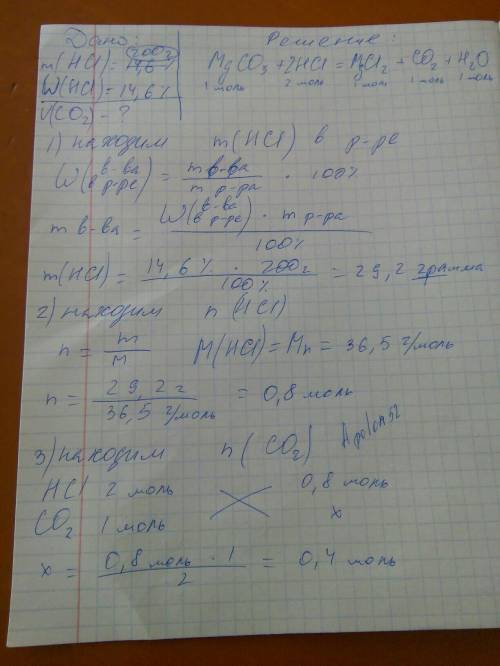 Дано:
m(HCl)= 200г
W(HCl)=14,6%
V(CO₂) - ?
Решение:
MgCO₃ + 2HCl = MgCl₂ + CO₂ + H₂O
1 моль 2 моль 1 моль 1 моль 1 моль
1) находим m(HCl) в р-ре
W(в-ва в р-ре) = m в-ва / m р-ра · 100%
m в-ва = W(в-ва в р-ре) · m р-ра / 100%
m(HCl) = 14,6% · 200г / 100% = 29,2 грамма
2) находим n(HCl)
n = m / M M(HCl) = Mr = 36,5 г/моль
n = 29,2 г / 36,5 г/моль = 0,8 моль
3) находим n(CO₂) Apolon52
HCl 2 моль 0,8 моль
CO₂ 1 моль x
x = 0,8 моль · 1 / 2 = 0,4 моль